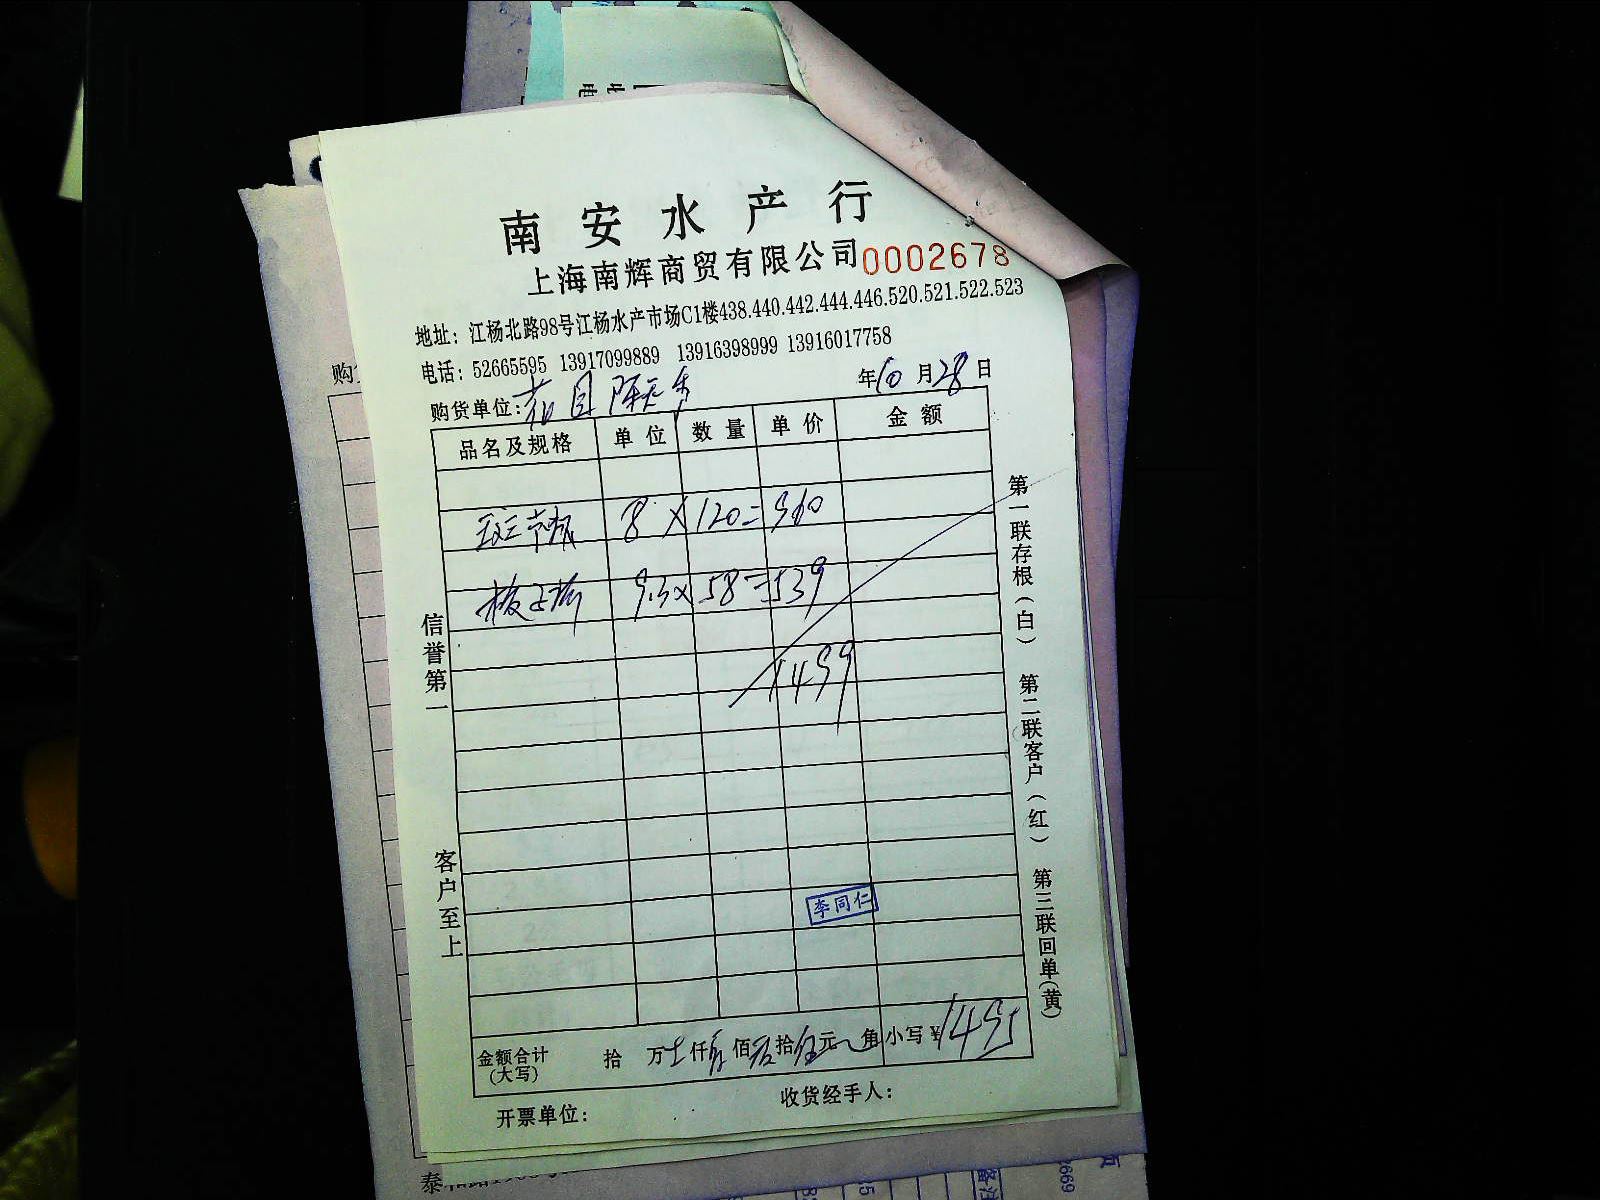 南安水产行
上海南辉商贸有限公司 0002678
地址：江杨北路98号江杨水产市场C1楼438.440.442.444.446.520.521.522.523
电话：52665595 13917099889 13916398999 13916017758
年10月28日
购货单位：
品名及规格 单位 数量 单价 金额
斑节虾 8×120=960
9.3×58=539
1499
信誉第一
客户至上
第一联存根(白) 第二联客户(红) 第三联回单(黄)
李同仁
金额合计(大写) 拾 万 仟 佰 拾 元 角 小写¥1495
开票单位：
收货经手人：
购